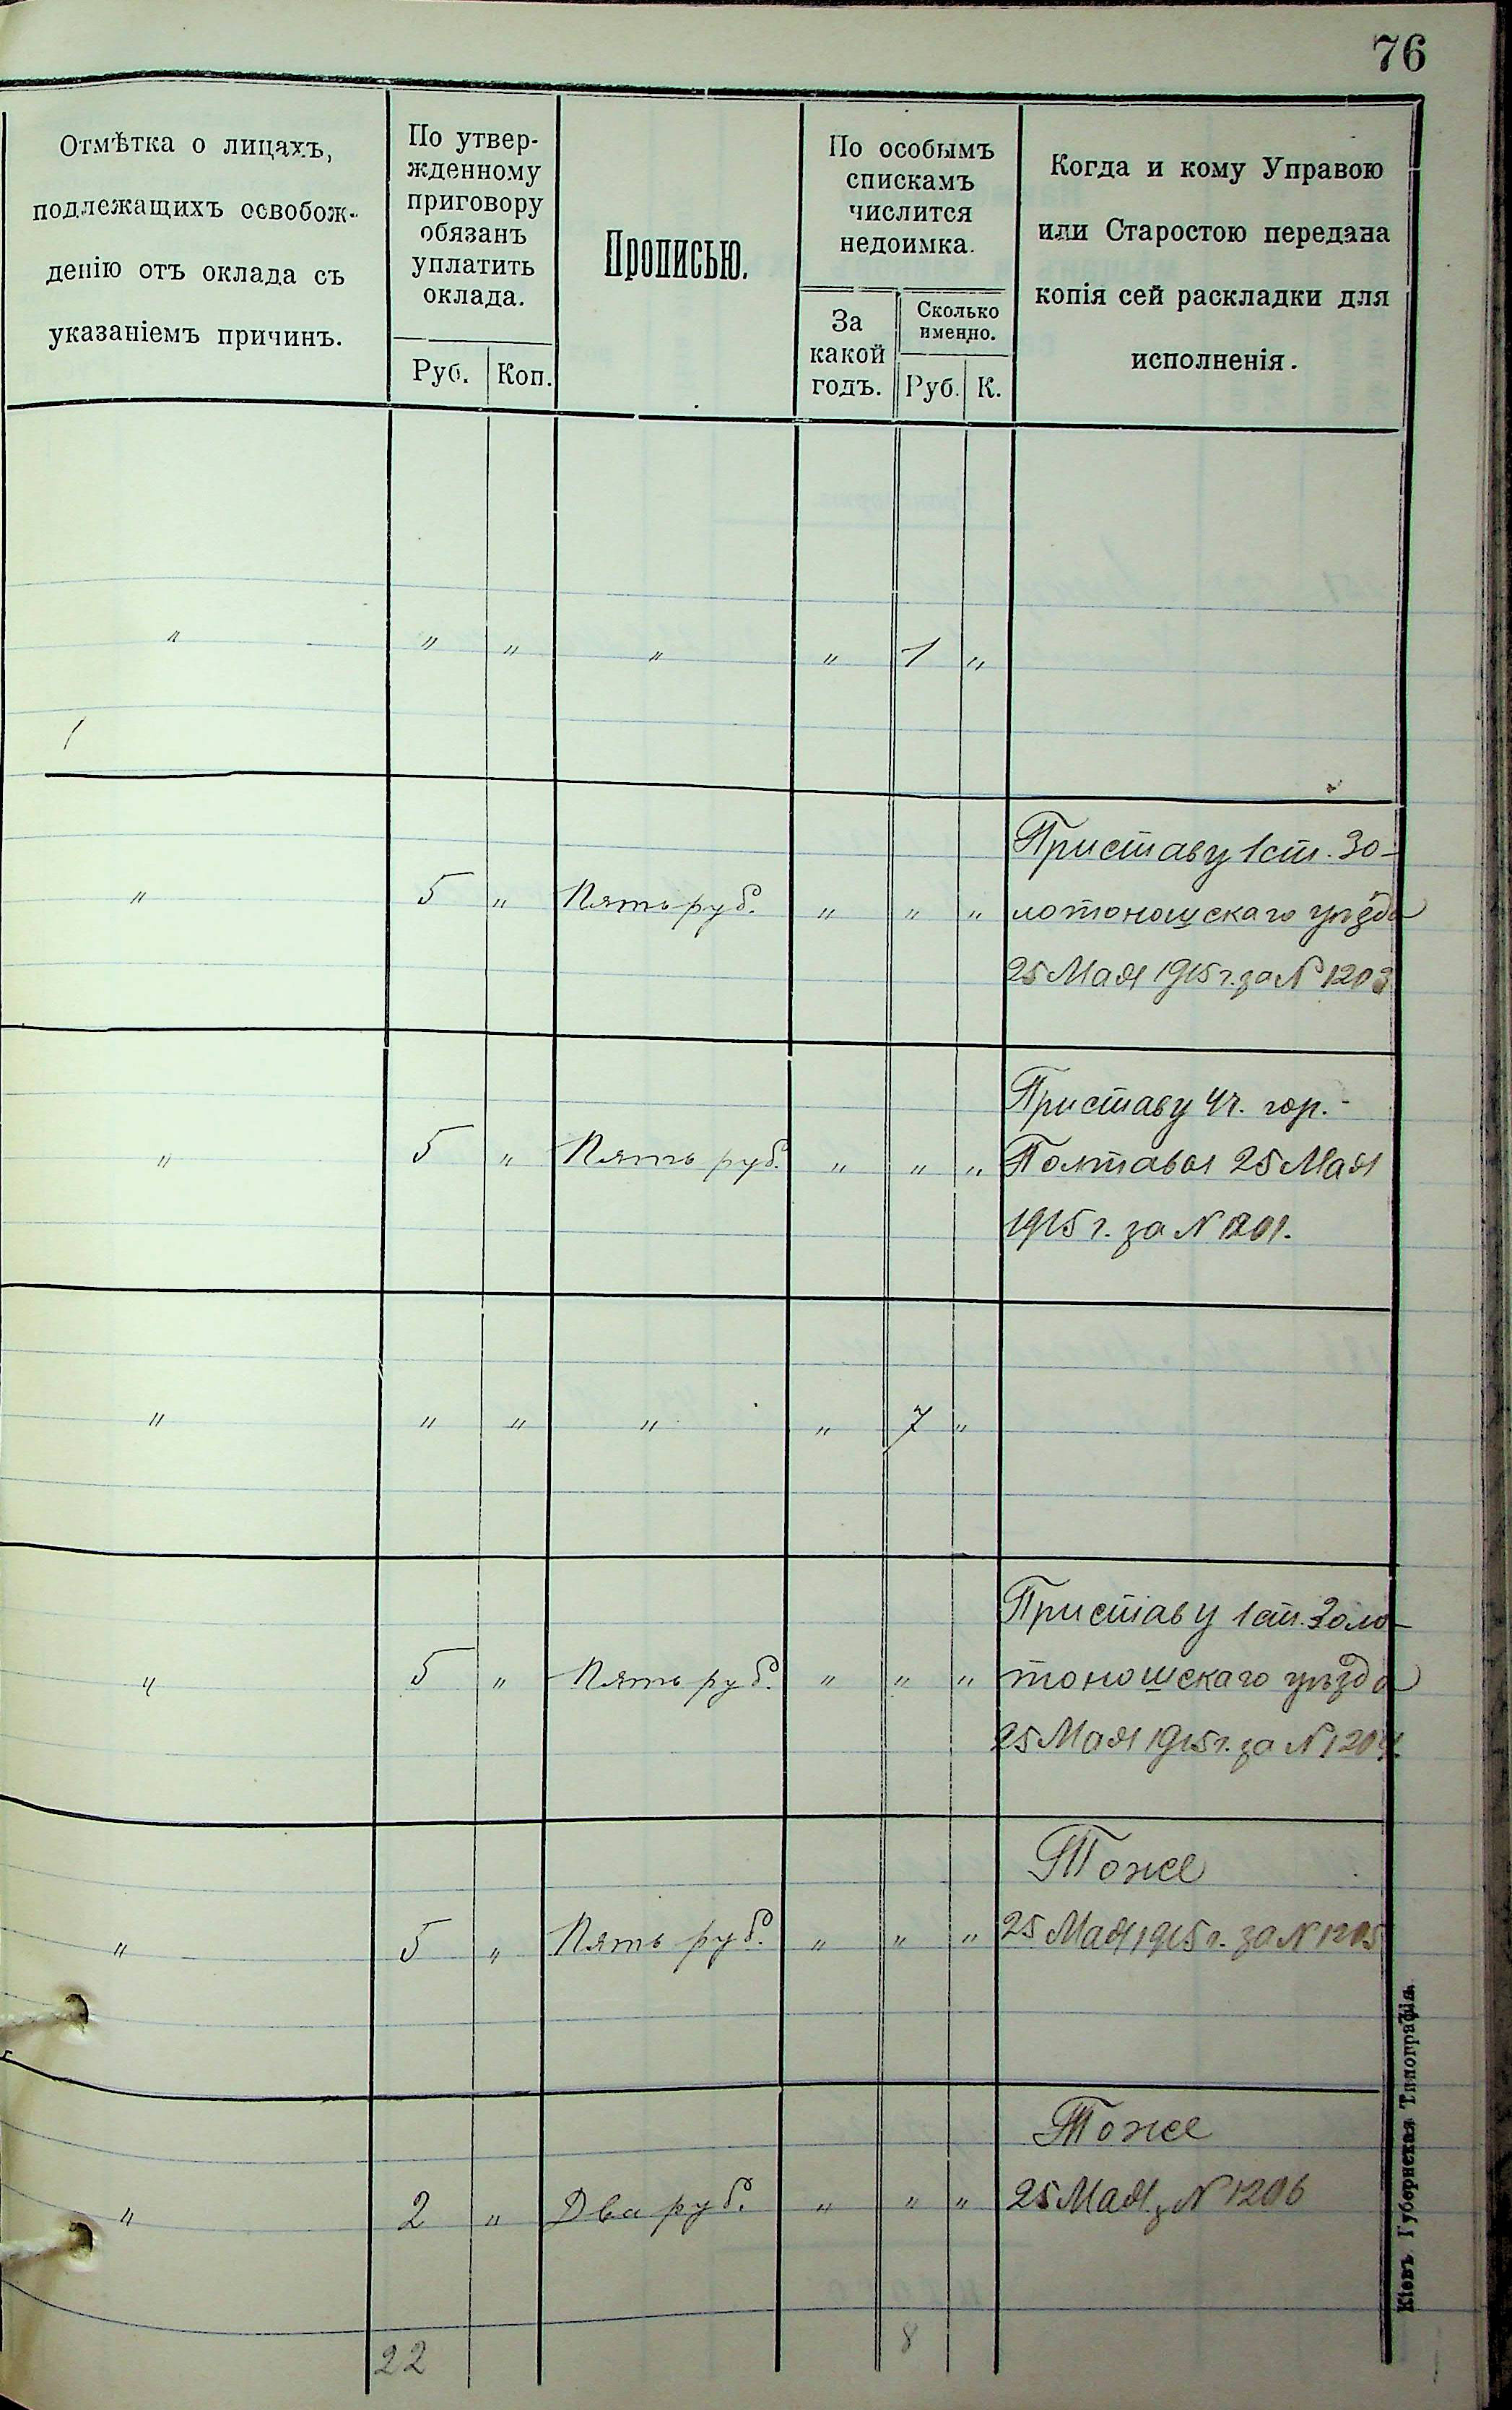 76
Отмѣтка о лицахъ,
подлежащихъ освобож-
денію отъ оклада съ
указаніемъ причинъ.
По утвер-
жденному
приговору
обязанъ
уплатить
оклада.
Руб. Коп.
Прописью.
По особымъ
спискамъ
числится
недоимка.
За
какой
годъ.
Сколько
именно.
Руб. К.
Когда и кому Управою
или Старостою передана
копія сей раскладки для
исполненія.
" " " " " 1 "
Приставу 1 ст. Зо-
" 5 " Пять руб. " " " лотоношскаго уѣзда
25 Мая 1915 г. за N 1203
Приставу 4 ч. гор.
" 5 " Пять руб. " " " Полтавы 25 Мая
1915 г. за N 1201.
" " " " " 7 "
Приставу 1 ст. Золо-
" 5 " Пять руб. " " " тоношскаго уѣзда
25 Мая 1915 г. за N 1204.
Тоже
" 5 " Пять руб. " " " 25 Мая 1915 г. за N 1205
Тоже
" 2 " Два руб. " " " 25 Мая з. N 1206
22 8
Кіевъ. Губернская Типографія.